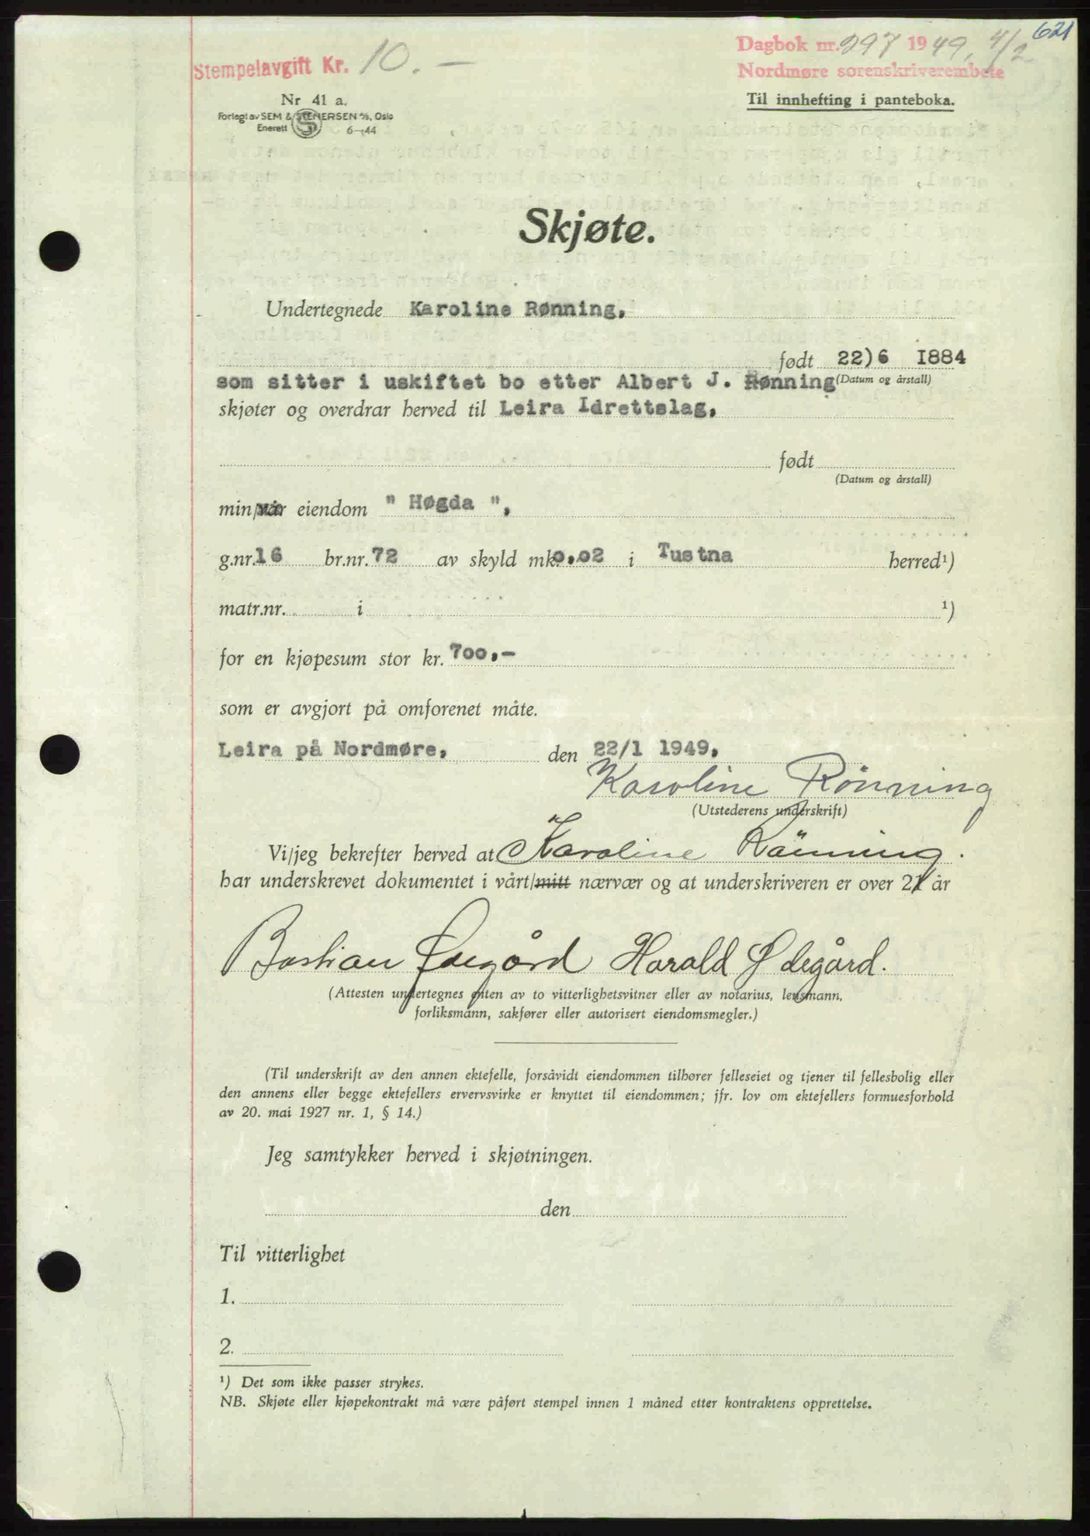 621
Stempelavgift Kr. 10.-
Dagbok nr. 297 1949, 4/2
Nordmøre sorenskriverembete
Nr 41 a.
Forlegt av SEM & STENERSEN A/S, Oslo
Enerett S 6-44
Til innhefting i panteboka.
Skjøte.
Undertegnede Karoline Rønning,
født 22)6 1884
som sitter i uskiftet bo etter Albert J. Rønning (Datum og årstall)
skjøter og overdrar herved til Leira Idrettslag,
født
(Datum og årstall)
min/vår eiendom " Høgda ",
g.nr. 16 br.nr. 72 av skyld mk. 0.02 i Tustna herred¹)
matr.nr. i ¹)
for en kjøpesum stor kr. 700,-
som er avgjort på omforenet måte.
Leira på Nordmøre, den 22/1 1949,
Karoline Rønning
(Utstederens underskrift)
Vi/jeg bekrefter herved at Karoline Rönning.
har underskrevet dokumentet i vårt/mitt nærvær og at underskriveren er over 21 år
Bastian Ødegård Harald Ødegård.
(Attesten undertegnes enten av to vitterlighetsvitner eller av notarius, lensmann,
forliksmann, sakfører eller autorisert eiendomsmegler.)
(Til underskrift av den annen ektefelle, forsåvidt eiendommen tilhører felleseiet og tjener til fellesbolig eller
den annens eller begge ektefellers ervervsvirke er knyttet til eiendommen; jfr. lov om ektefellers formuesforhold
av 20. mai 1927 nr. 1, § 14.)
Jeg samtykker herved i skjøtningen.
den
Til vitterlighet
1.
2.
¹) Det som ikke passer strykes.
NB. Skjøte eller kjøpekontrakt må være påført stempel innen 1 måned etter kontraktens opprettelse.